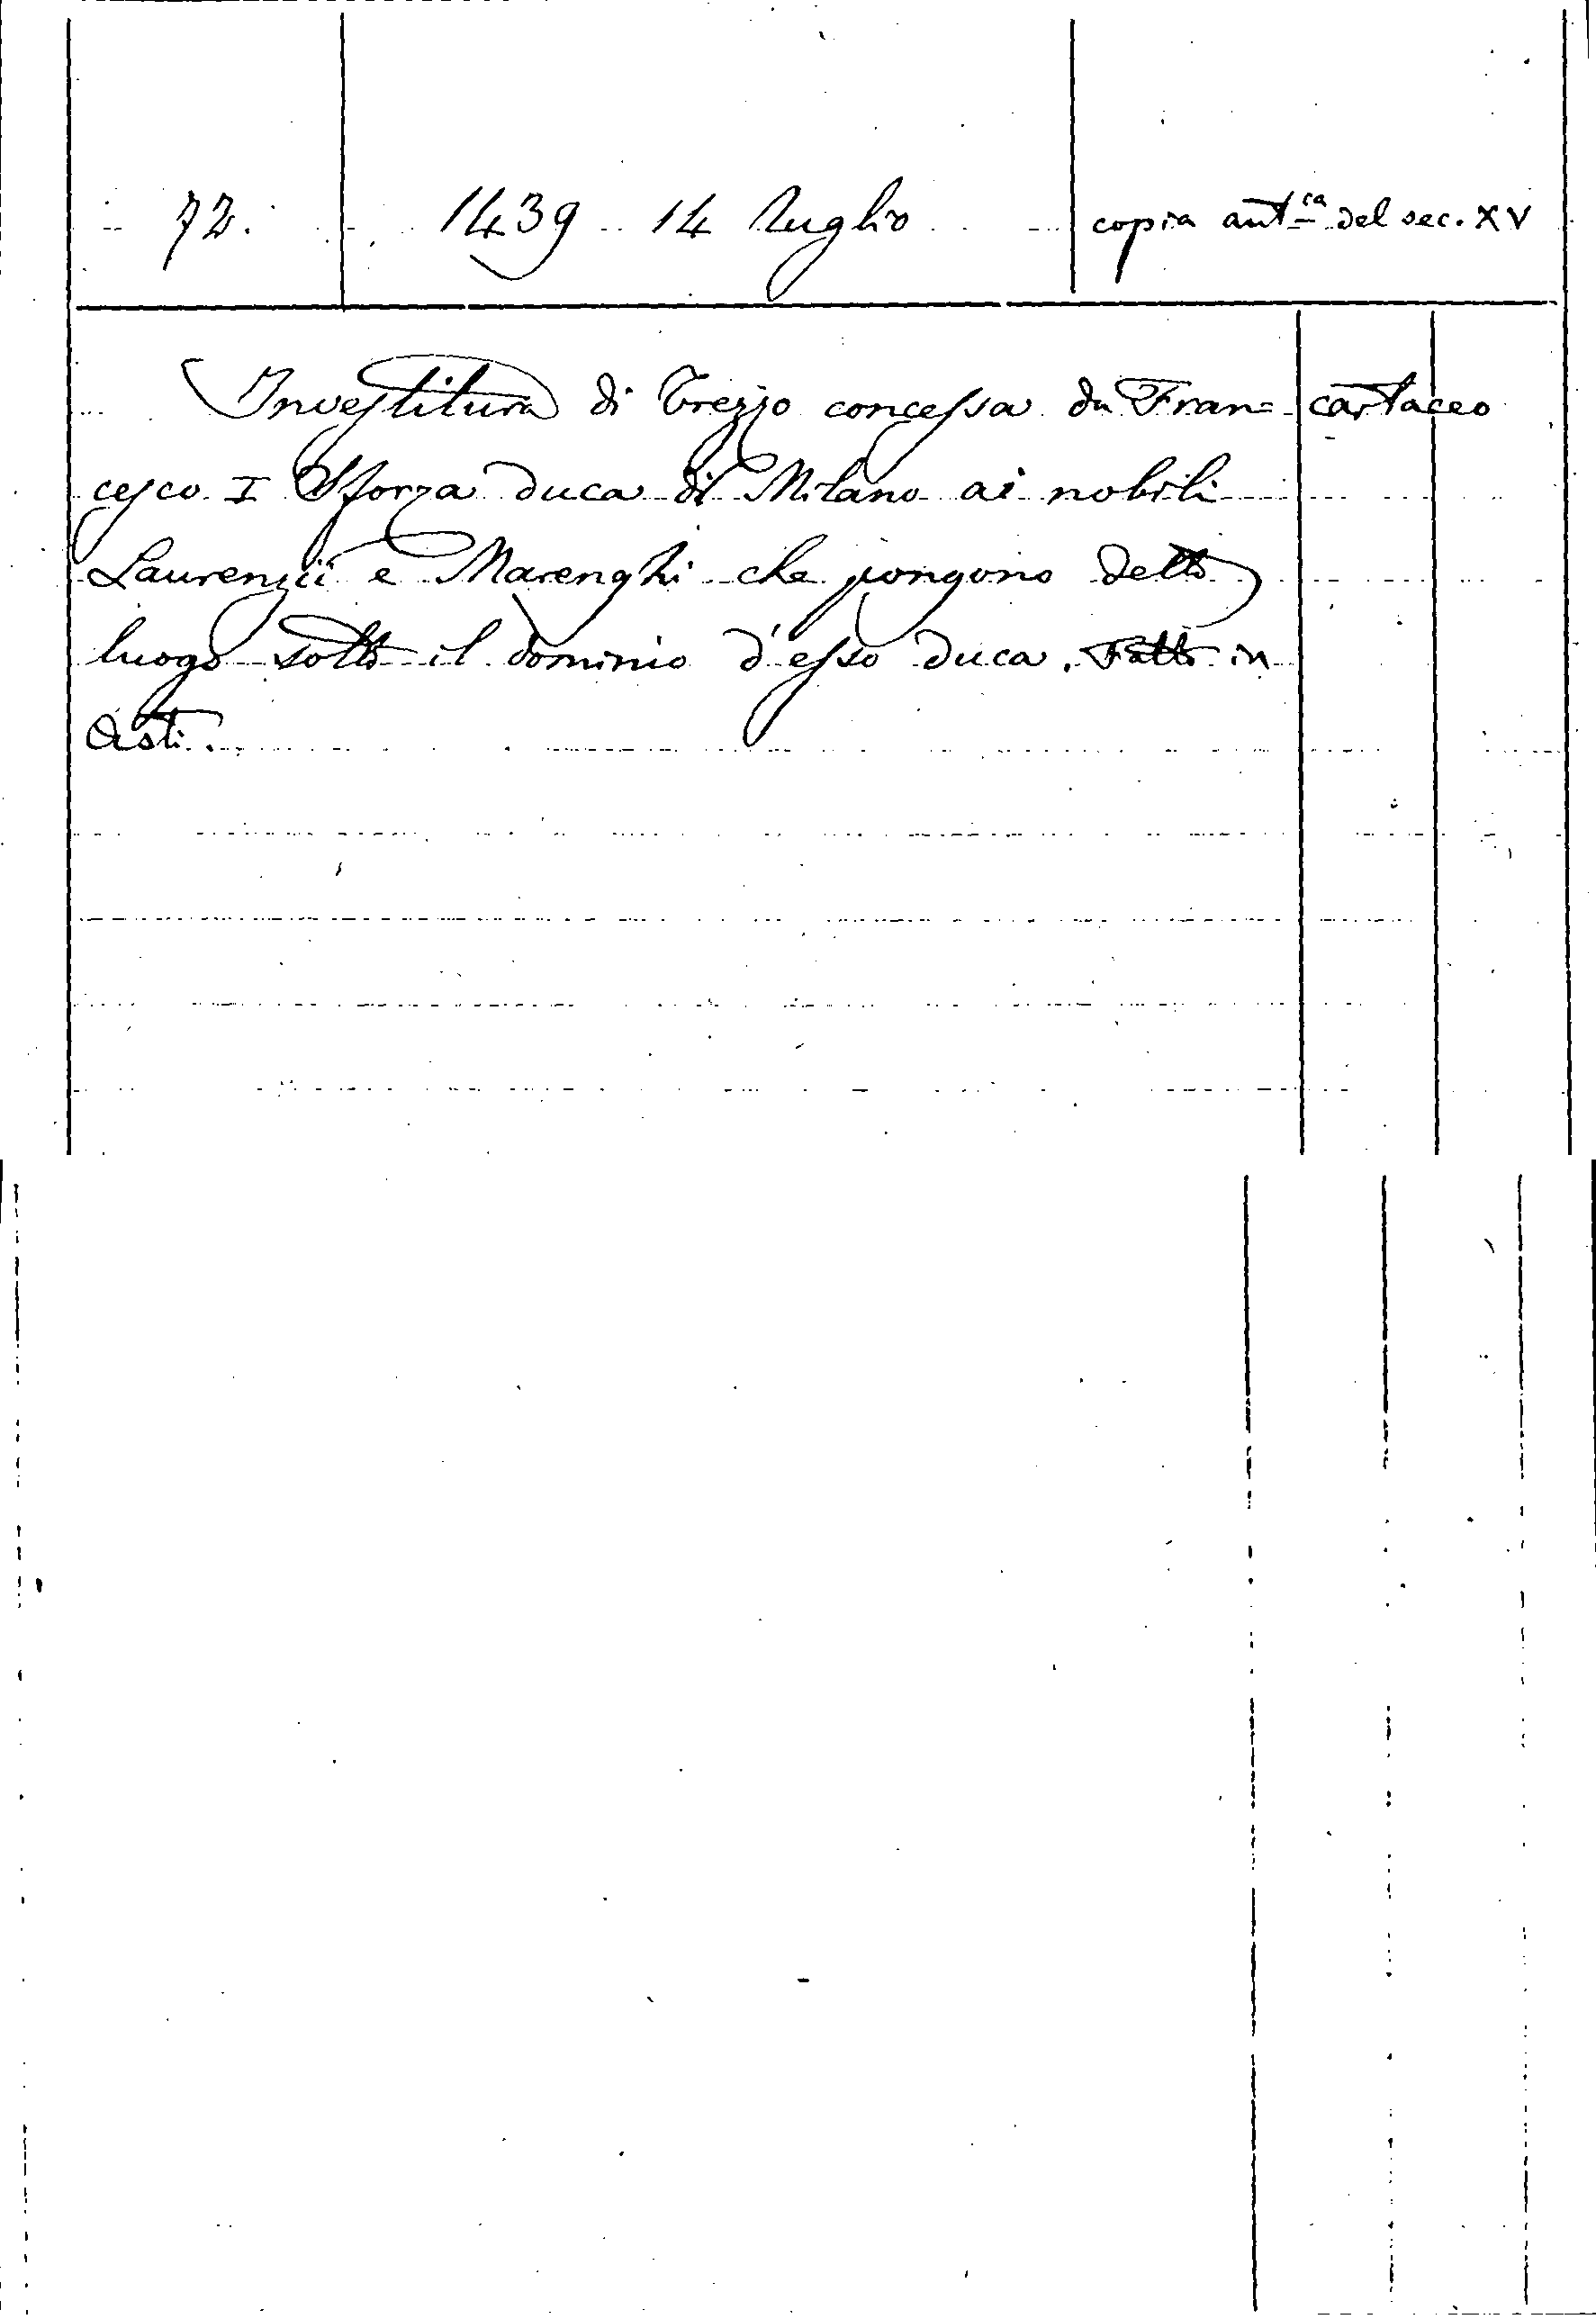 72.
1439 14 luglio
copia ant.ca del sec. XV
Investitura di Trezzo concessa da Fran=
cartaceo
cesco I Sforza duca di Milano ai nobili
Laurenzii e Marenghi che pongono detto
luogo sotto il dominio d'esso duca. Fatto in
Asti.